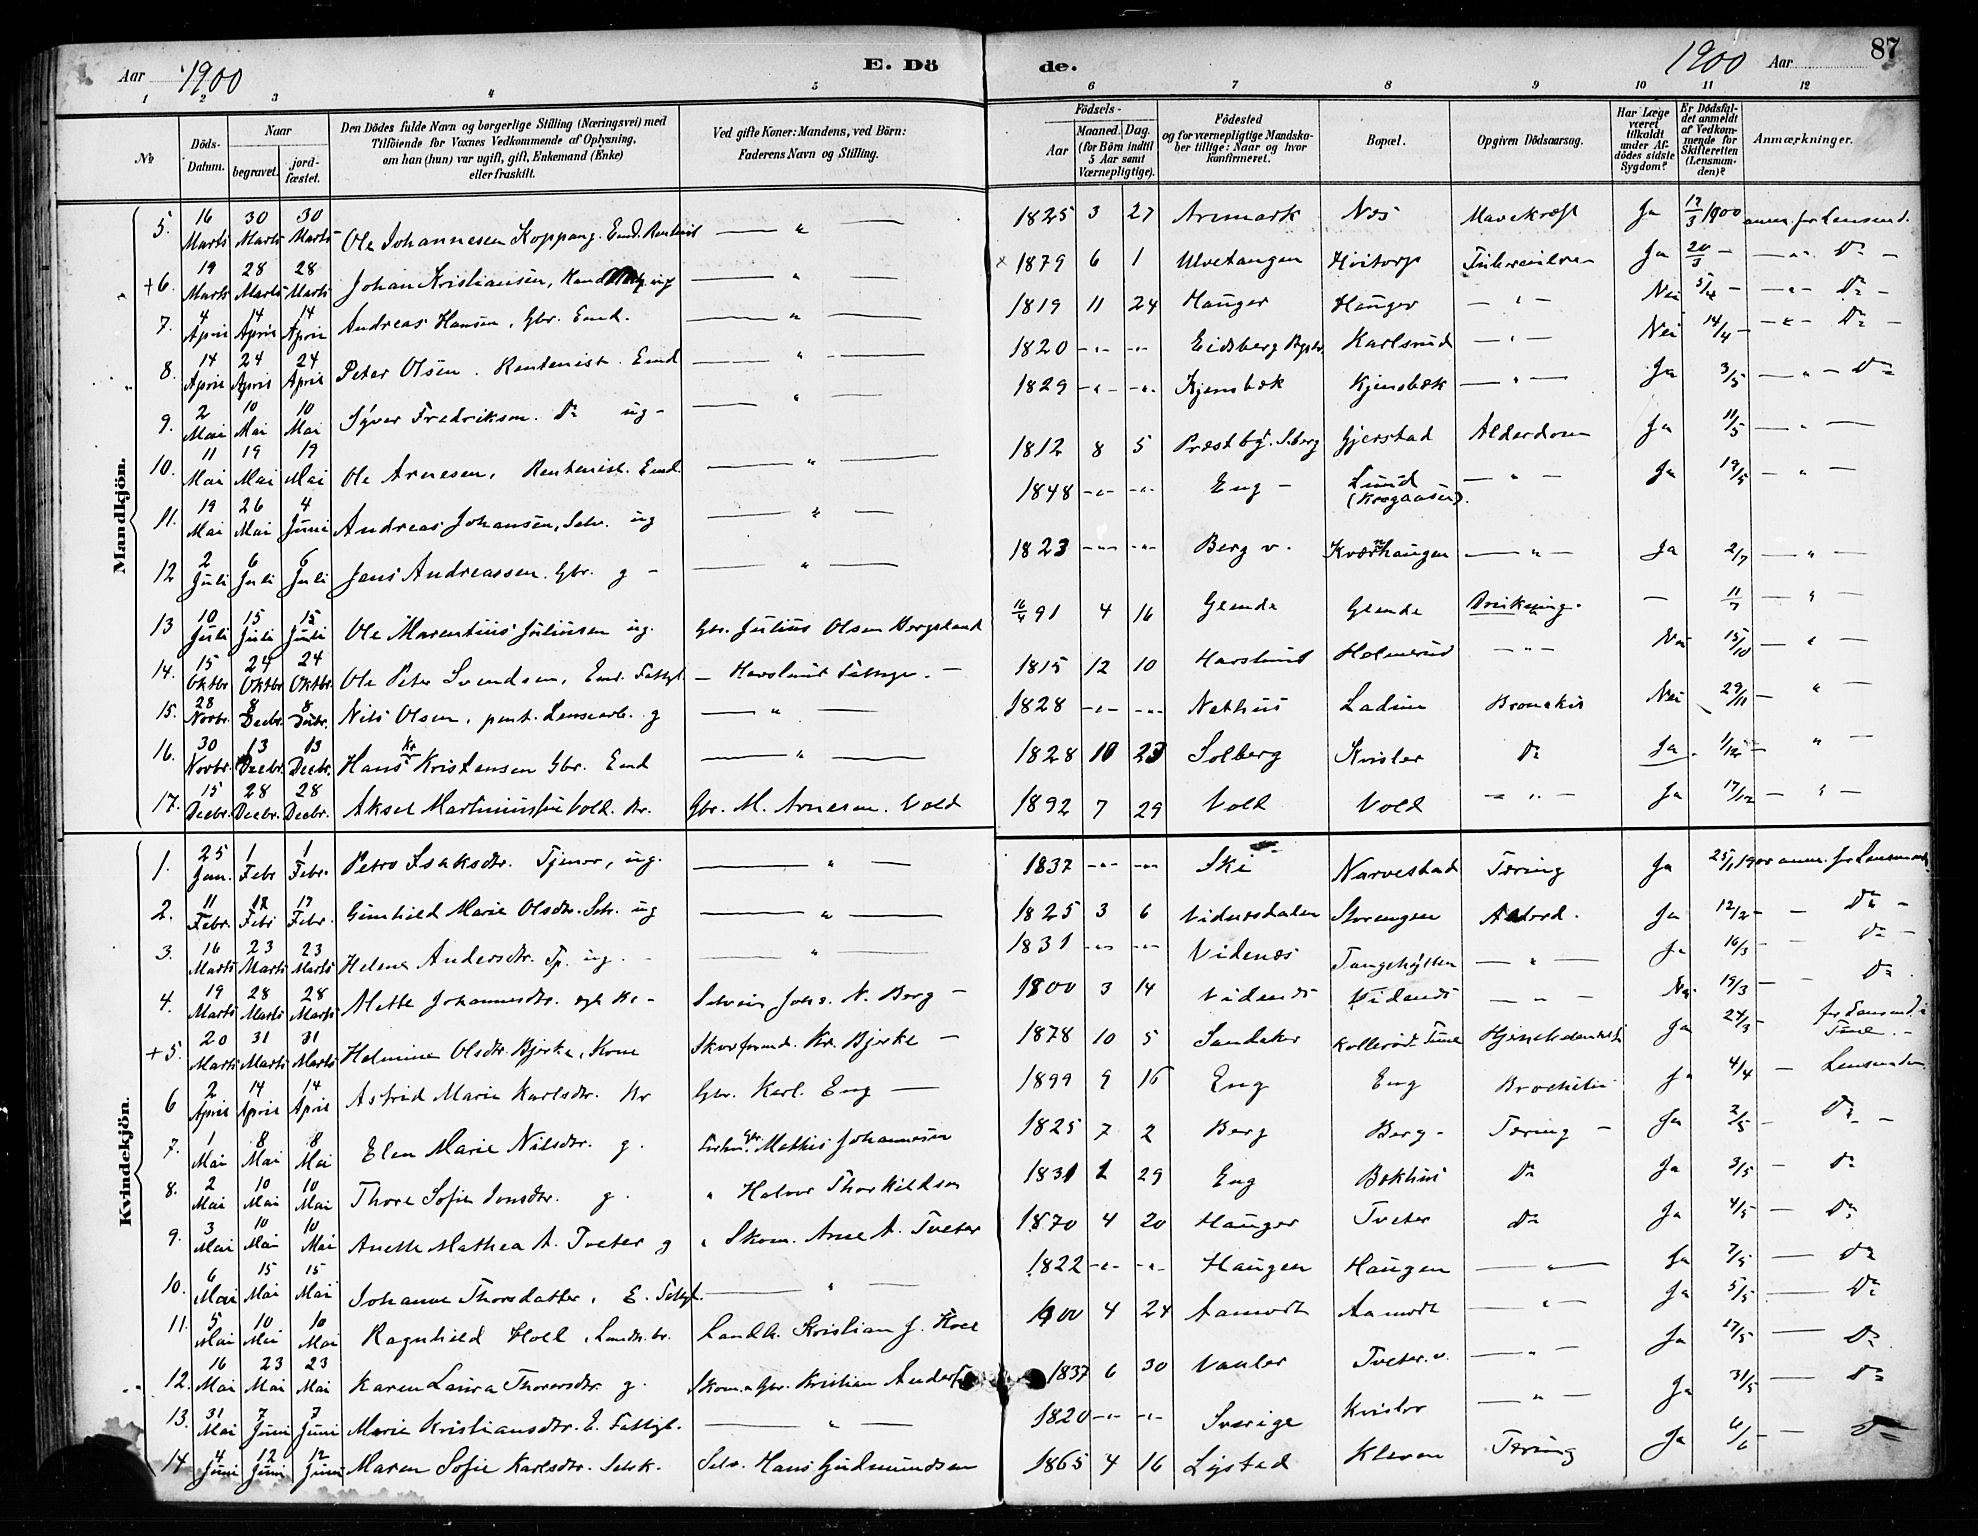 Aar 1900 E. Dö de. 1900 Aar 87
1 2 3 4 5 6 7 8 9 10 11 12
No Döds-Datum. Naar begravet. jord-fæstet. Den Dödes fulde Navn og borgerlige Stilling (Næringsvei) med Tilföiende for Voxnes Vedkommende af Oplysning, om han (hun) var ugift, gift, Enkemand (Enke) eller fraskilt. Ved gifte Koner: Mandens, ved Börn: Faderens Navn og Stilling. Födsels- Aar Maaned. Dag. (for Börn indtil 5 Aar samt Værnepligtige). Födested og for værnepligtige Mandskaber tillige: Naar og hvor konfirmeret. Bopæl. Opgiven Dödsaarsag. Har Læge været tilkaldt under Afdödes sidste Sygdom? Er Dödsfaldet anmeldt af Vedkommende for Skifteretten (Lensmanden)? Anmærkninger.
Mandkjön.
5. 16 Marts 30 Marts 30 Marts Ole Johannesen Koppang. Emd. Rentenist — " — 1825 3 27 Aremark Næs Mavekræft Ja 17/3 1900 anm. for Lensmd.
+6. 19 Marts 28 Marts 28 Marts Johan Kristiansen, ug — " — × 1879 6 1 Ulvetangen Hvitorp Tuberculose Ja 20/3 — — " — Do —
7. 4 April 14 April 14 April Andreas Hansen, Gbr. Emd. — " — 1819 11 24 Hauger Hauger — " — Nei 5/4 — — " — Do —
8. 14 April 24 April 24 April Peter Olsen. Rentenist. Emd — " — 1820 — " — — " — Eidsberg Karlsrud — " — Nei 14/4 — — " — Do —
9. 2 Mai 10 Mai 10 Mai Syver Fredriksen. Do ug — — " — 1829 — " — — " — Kjensbæk Kjensbæk — " — Ja 3/5 — " — Do
10. 11 Mai 19 Mai 19 Mai Ole Arnesen, Rentenist. Emd. — " — 1812 8 5 Præstby. Sberg Gjerstad Alderdom Ja 11/5 — " —
11. 19 Mai 26 Mai 4 Juni Andreas Johansen, Selv. ug — " — 1848 — " — — " — Eng — Lund (Krogaasen). — " — Ja 19/5 — " —
12 2 Juli 6 Juli 6 Juli Jens Andreassen. Gbr. g — — " — 1823 — " — — " — Berg v. Kværnhaugen — " — Ja 2/7 — " —
13 10 Juli 15 Juli 15 Juli Ole Marentius Juliusen ug. Gbr. Julius Olsen Bergsland 16/4 91 4 16 Glende Glende Drukning. — 11/7 — " —
14. 15 Oktbr 24 Oktbr. 24 Oktbr. Ole Peter Svendsen, Emd. Fattigl — Havslund Fattige. — 1815 12 10 Havslund Holmerud — " — Nei 15/10 — " —
15. 28 Novbr. 8 Decbr. 8 Decbr. Nils Olsen, pent. Lensearb. g — " — 1828 — " — — " — Nethus Ladim Bronckit Nei 29/11 — " —
16. 30 Novbr. 13 Decbr. 13 Decbr. Hans Kr Kristensen Gbr. Emd — " — 1828 10 23 Solberg Kvisler Do Ja. 1/12 — " —
17. 15 Decbr. 28 Decbr. 28 Decbr. Aksel Martinius Vold. Br. Gbr. M. Arnesen. Vold 1892 7 29 Vold Vold — " — Ja 17/12 — " —
Kvindekjön.
1. 25 Jan. 1 Febr 1 Febr. Petro Isaksdtr. Tjener, ug. — " — 1837 — " — — " — Ski Narvestad Tæring Ja 25/1 1900 anm. for Lensmand
2. 11 Febr. 17 Febr 17 Febr. Gunhild Marie Olsdtr. Selv. ug — " — 1825 3 6 Vidnesdalen Storengen Ja 12/2 — — Do —
3. 16 Marts 23 Marts 23 Marts Helene Andersdtr. Tp. ug. — — " — 1831 — " — — " — Videnæs Tangehytten — " — Ja 16/3 — — Do —
4. 19 Marts 28 Marts 28 Marts Mette Johannesdtr. Selveier Johs. N. Berg — 1800 3 14 Videnæs Videnæs — " — Nei 19/3 — — Do
+5. 20 Marts 31 Marts 31 Marts Helmine Olsdtr. Bjerke, Kone Skovformd. Kr. Bjerke — 1878 10 5 Sandaker Kollerød Tune Ja 24/3 — for Lensmd. i Tune. —
6 2 April 14 April 14 April Astrid Marie Karlsdtr. Br Gbr. Karl. Eng — 1899 9 16 Eng Eng Ja 4/4 — Lensmanden
7. 1 Mai 8 Mai 8 Mai Elen Marie Nilsdtr. g. Gbr. Mathis Johannesen 1825 7 2 Berg Berg — Tæring — Ja 2/5 — Do —
8. 2 Mai 10 Mai 10 Mai Thore Sofie Jonsdtr. g. " Halvor Thorkildsen 1831 1 29 Eng Bøkhus Do Ja 3/5 — Do
9. 3 Mai 10 Mai 10 Mai Anette Mathea A. Tveter g " Skom. Arne A. Tveter 1870 4 20 Hauger Tveter Do Ja 4/5 — Do
10. 6 Mai 15 Mai 15 Mai Johanne Thorsdatter, E. Fattigl. — " — 1822 — " — — " — Haugen Haugen — " — Ja 7/5 — Do
11. 5 Mai 10 Mai 10 Mai Ragnhild Holl, Landbr. Landh. Kristian J. Holl 1900 4 24 Aamodt Aamodt — " — Ja 5/5 — Do
12. 16 Mai 23 Mai 23 Mai Karen Laura Thoresdtr. g. Skom. Gbr. Kristian Anders 1837 6 30 Vanler Tveter. v. — " — Ja 17/5 — Do
13. 31 Mai 7 Juni 7 Juni Marie Kristiansdtr. E. Fattigl. — " — 1820 — " — — " — Sverige Kvisler — " — Ja 31/5 — Do
14 4 Juni 12 Juni 12 Juni Maren Sofie Karlsdtr. Selvk. Selv. Hans Gudmundsen 1865 4 16 Lystad Kleven Tæring Ja 6/6 — Do